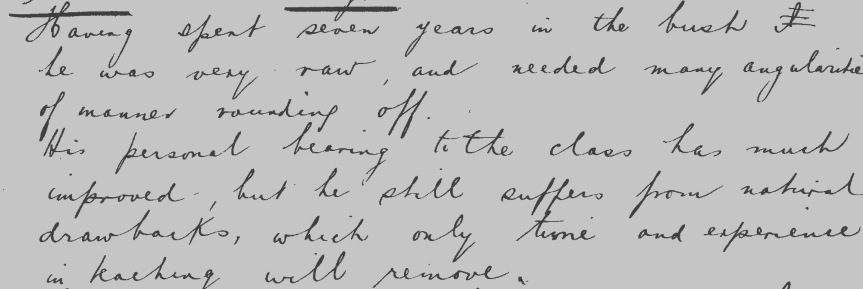 Having spent seven years in the bush I
he was very raw, and needed many angularities
of manner rounding off.
His personal bearing to the class has much
improved, but he still suffers from natural
drawbacks, which only time and experience
in teaching will remove.